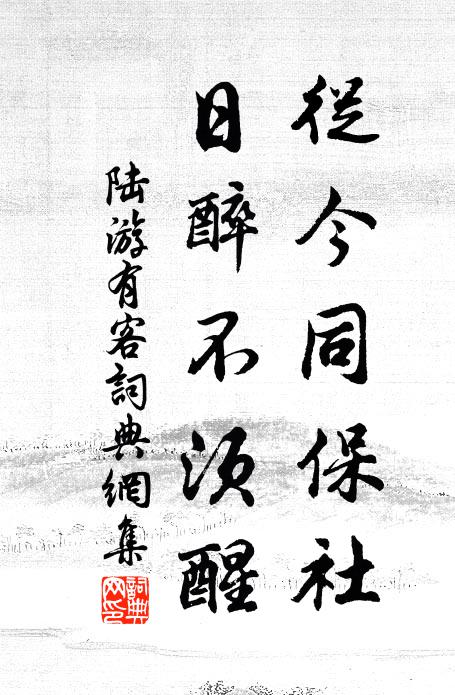 從今同保社
日醉不須醒
陆游有客詞典網集
詞典
网印